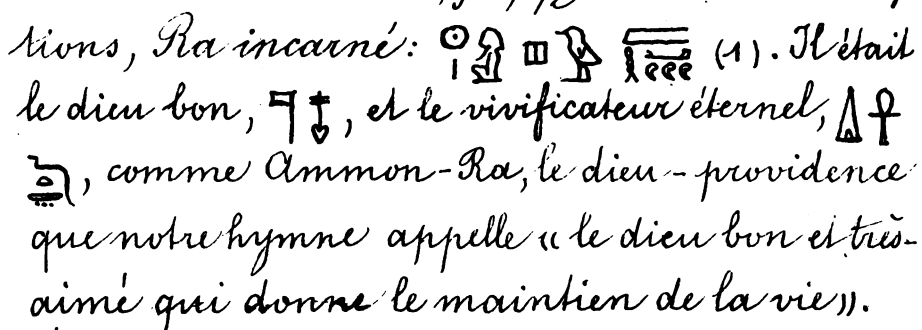 tions, Ra incarné: 𓇳𓏤𓀭 𓊪𓅱 (1). Il était
le dieu bon, 𓊹𓄤, et le vivificateur éternel, 𓏙𓋹
𓆖, comme Ammon-Ra, le dieu-providence
que notre hymne appelle « le dieu bon et très-
aimé qui donne le maintien de la vie ».